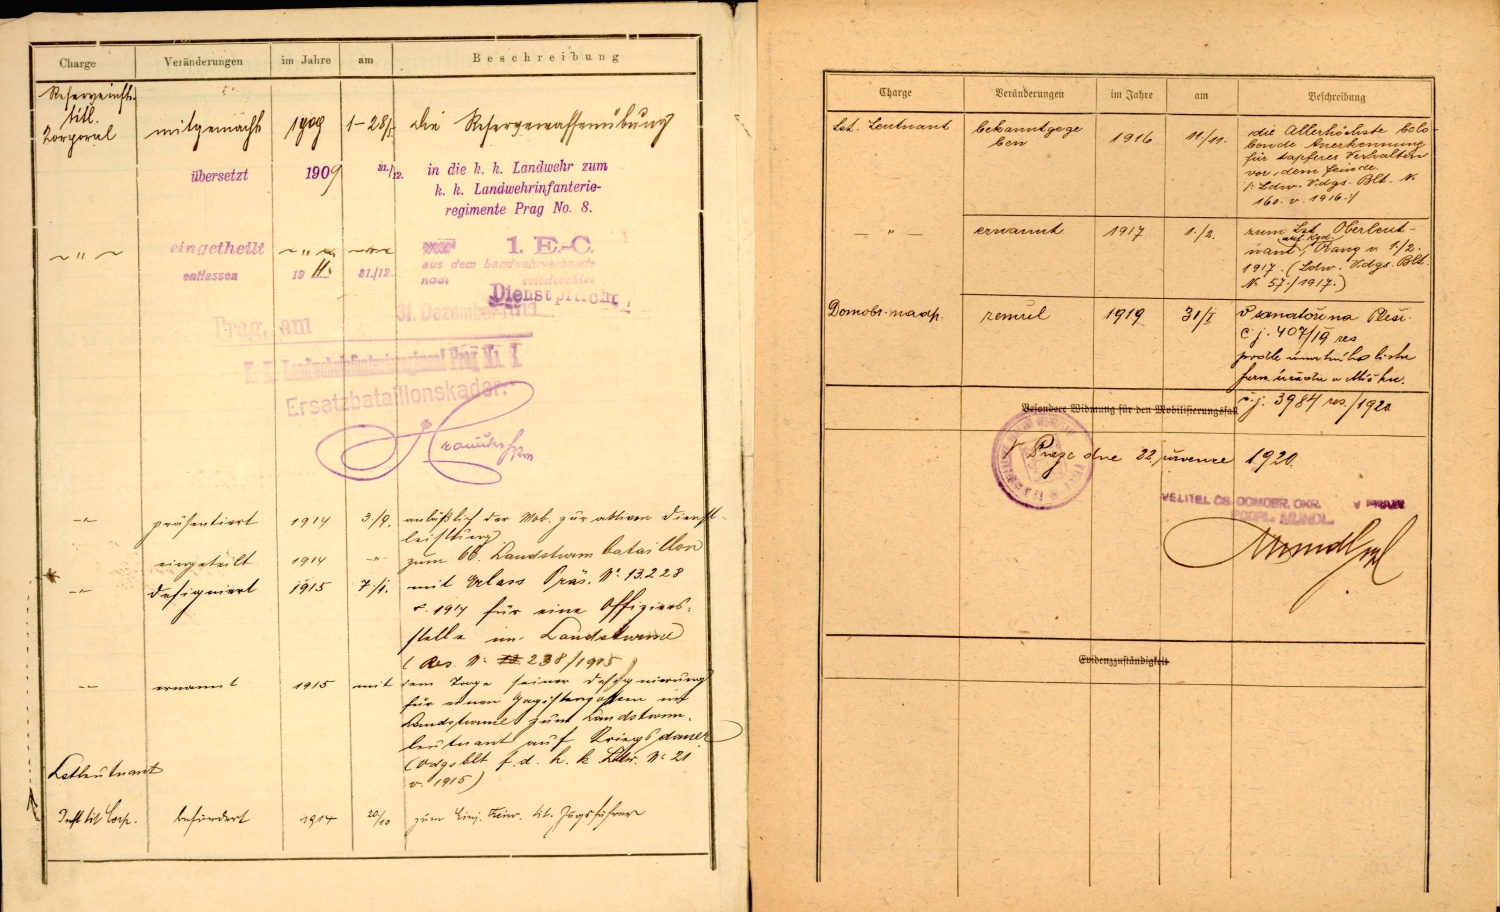 Charge Veränderungen im Jahre am Beschreibung
Reserveinft.
titl.
Korporal mitgemacht 1909 1-28/5 die Reservewaffenübung
übersetzt 1909 31./12. in die k. k. Landwehr zum
k. k. Landwehrinfanterie-
regimente Prag No. 8.
〃 eingetheilt 〃 1. E.-C.
entlassen 1911. 31./12. aus dem Landwehrverbande
nach vollstreckter
Dienstpflicht.
Prag, am 31. Dezember 1911
K. K. Landwehrinfanterieregiment Prag Nr. 8
Ersatzbataillonskader.
-"- präsentiert 1914 3/9. anläßlich der Mob. zur aktiven Dienst-
leistung
eingeteilt 1914 -"- zum 66. Landsturmbataillon
-"- designiert 1915 7./1. mit Erlass Präs. Nº 13.228
v. 1914 für eine Offiziers-
stelle im Landsturme
(Res. Nº 238/1915)
-"- ernannt 1915 mit dem Tage seiner Designierung
für einen Gagistenposten im
Landsturme zum Landsturm-
leutnant auf Kriegsdauer
(Vdgsblt f. d. k. k. Ldw. Nº 21
v. 1915)
Lstleutnant
Inft tit Corp. befördert 1914 20/10 zum Einj. Freiw. tit. Zugsführer
Charge Veränderungen im Jahre am Beschreibung
Lst. Leutnant bekanntgege
ben 1916 11./11. die Allerhöchste belo-
bende Anerkennung
für tapferes Verhalten
vor dem Feinde.
/: Ldw. Vdgs. Blt. Nº
160. v. 1916./
— " — ernannt 1917 1./2. zum Lst. Oberleut-
nant auf Kgd. (Rang v. 1./2.
1917. (Ldw. Vdgs. Blt.
Nº 57./1917.)
Domobr. nadp. zemřel 1919 31/I V sanatoriu na Pleši.
č. j. 407/19 res
podle úmrtního listu
farn. úřadu v Mníšku.
č. j. 3984 res/1920
Besondere Widmung für den Mobilisierungsfall
V Praze dne 22. července 1920.
VELITEL ČS. DOMOBR. OKR. V PRAZE
PODPL. MUNDL.
Evidenzzuständigkeit